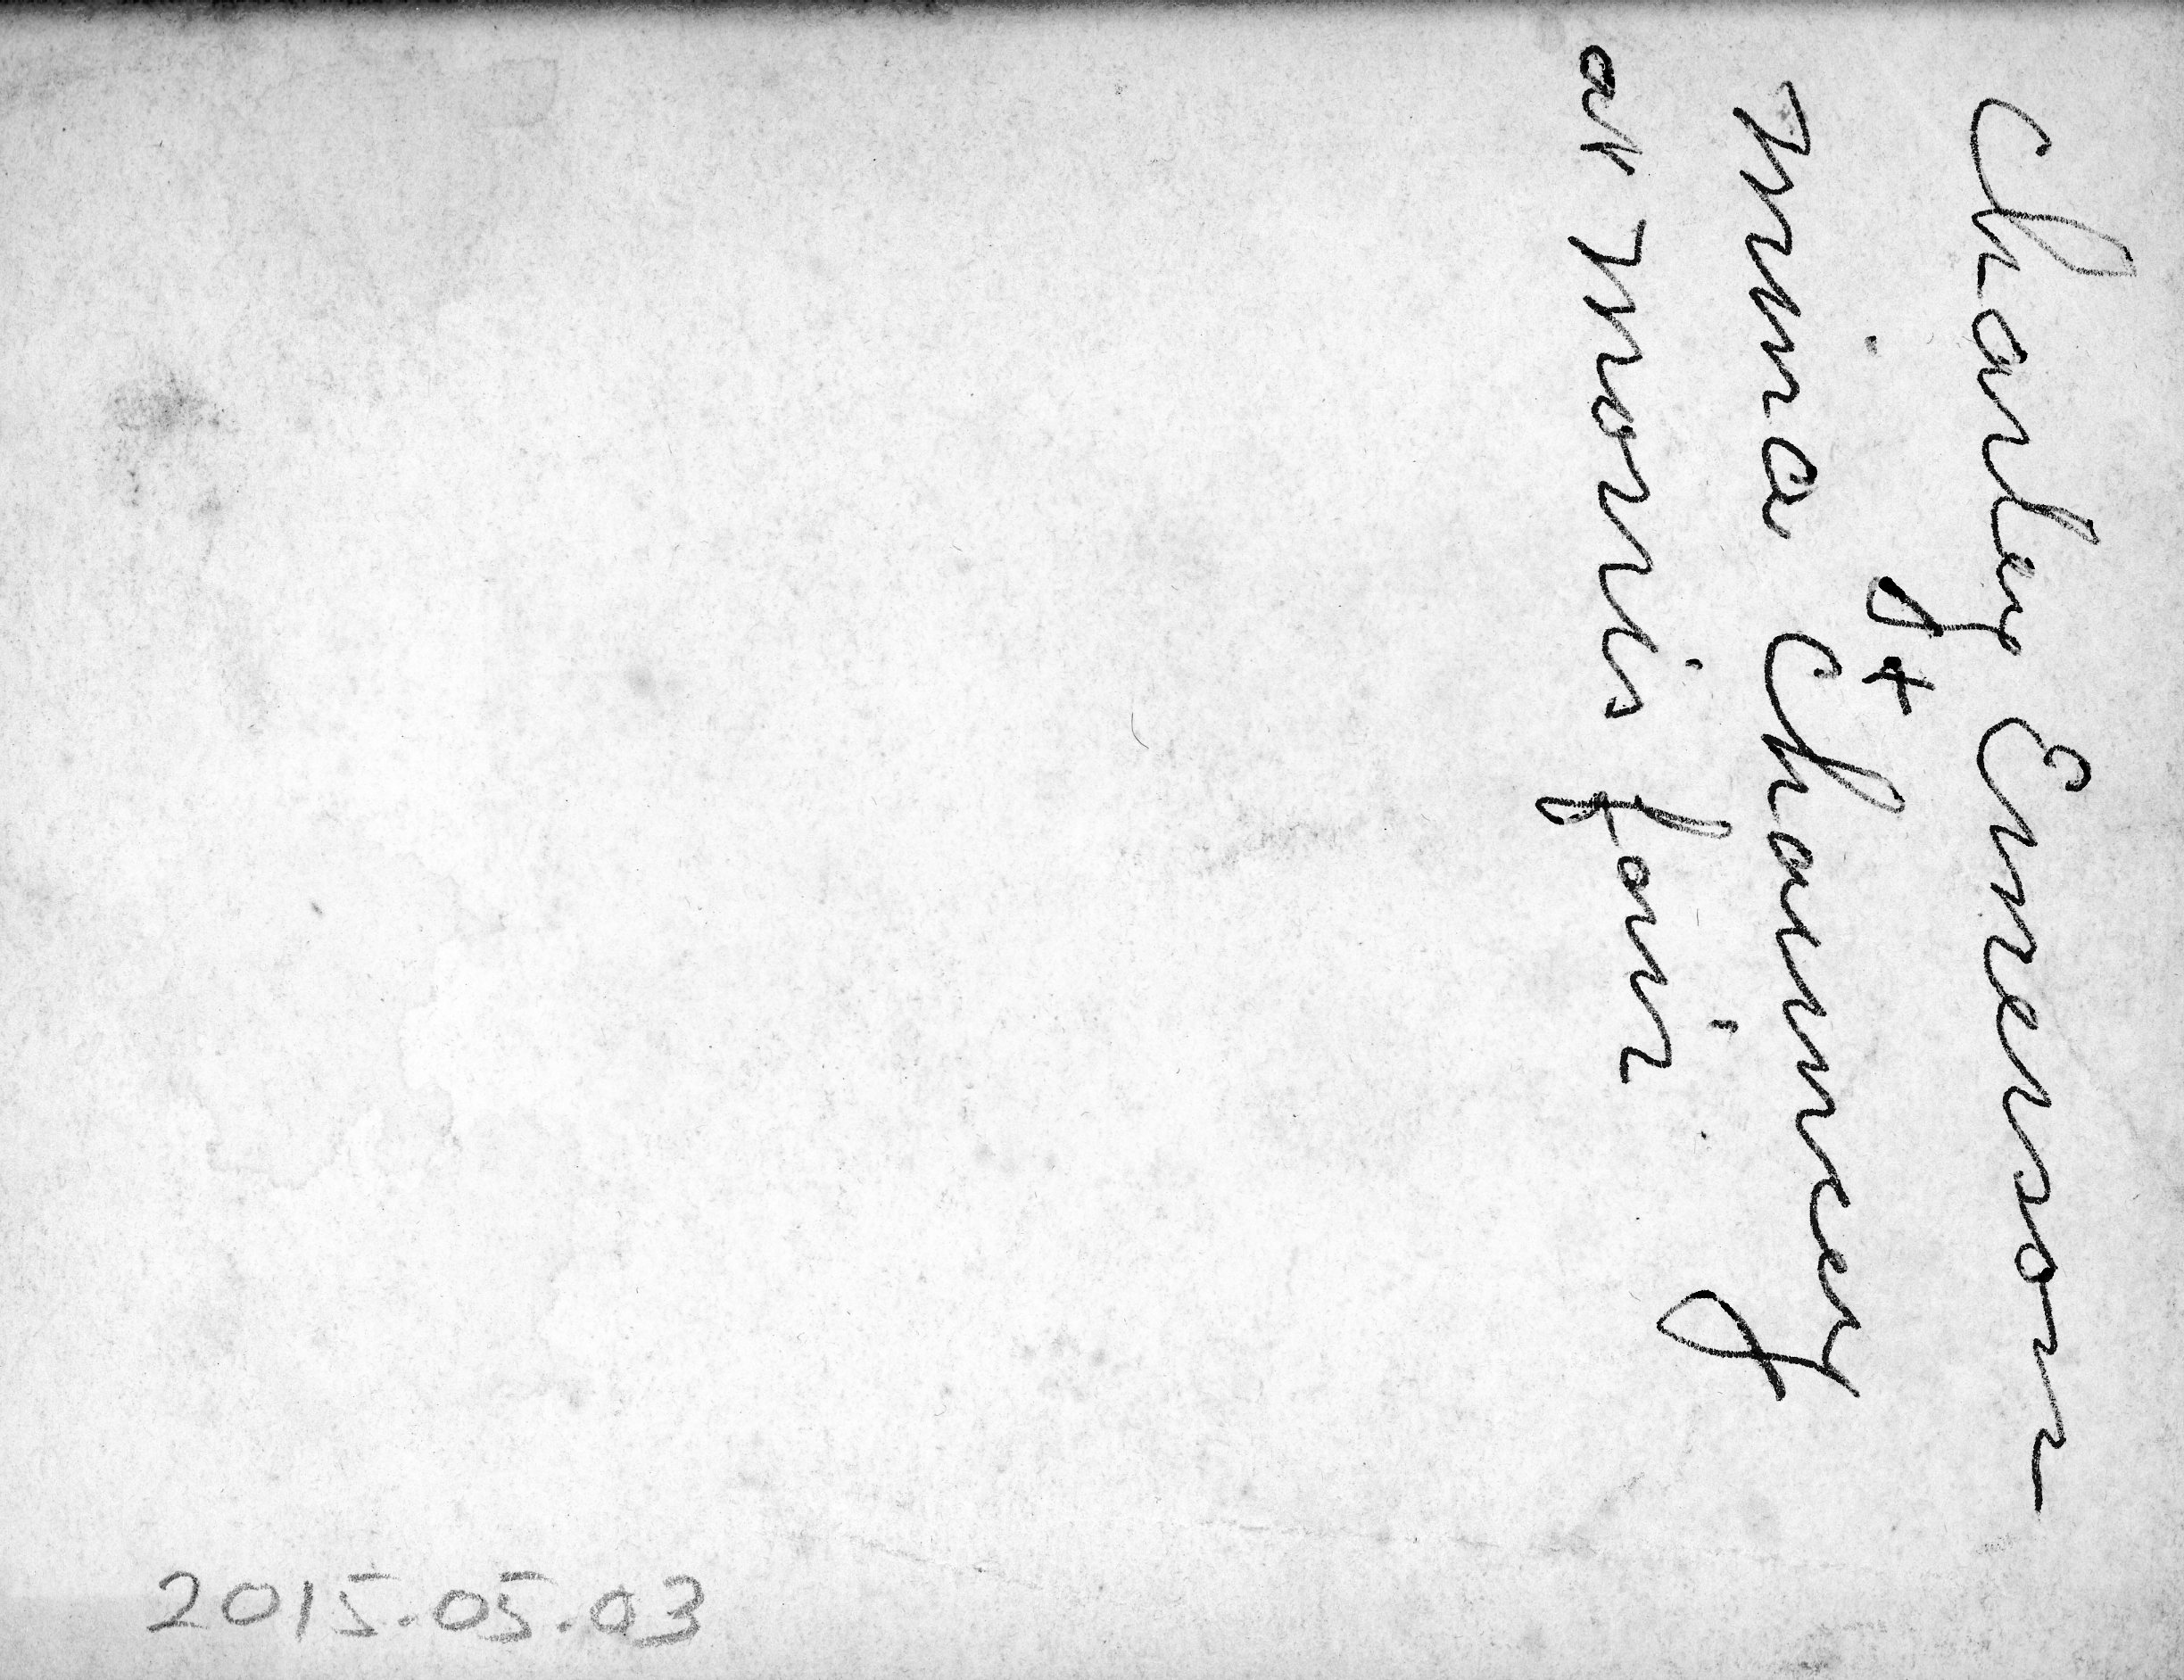 Charley Emerson
+
Nina Chauncey
at Norris fair
2015.05.03